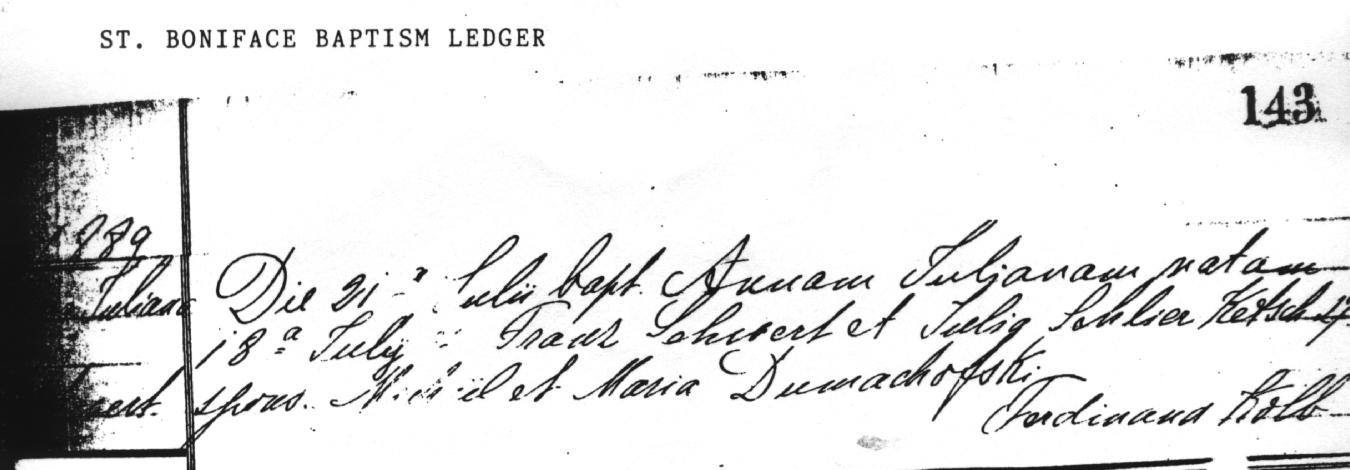 ST. BONIFACE BAPTISM LEDGER
143
1889
Juliana
Die 21-a Julii bapt. Annam Julianam natam
18a July Franz Schwert et Julia Schlier
spons. Michäel et Maria Dumachofski.
Ferdinand Kolb